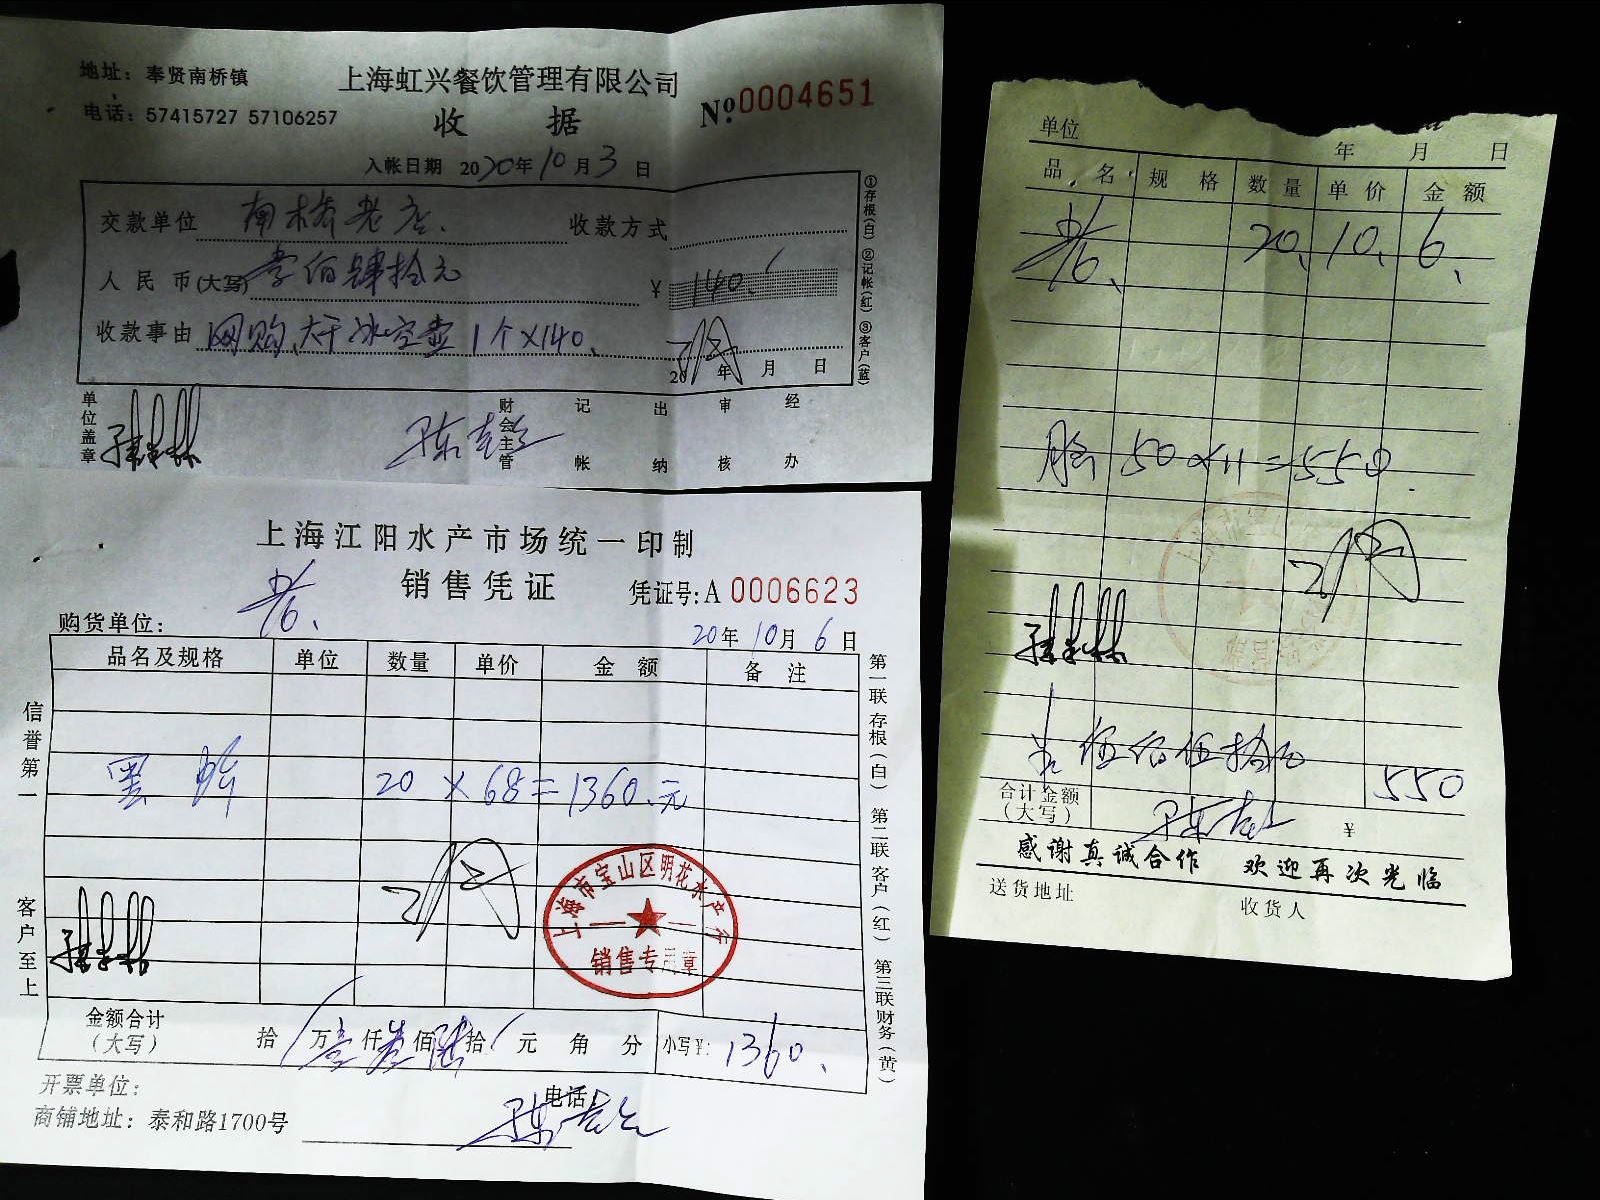 地址：奉贤南桥镇
上海虹兴餐饮管理有限公司
电话：57415727 57106257
收 据
№ 0004651
入帐日期 2020年10月3日
交款单位 南桥老店. 收款方式
人民币(大写) 壹佰肆拾元 ¥ 140.
收款事由 网购、大干冰空壶 1个×140.
20 年 月 日
①存根(白) ②记帐(红) ③客户(蓝)
单位盖章
财会主管 记帐 出纳 审核 经办
上海江阳水产市场统一印制
销售凭证
凭证号:A 0006623
购货单位:
20年 10月 6日
品名及规格 单位 数量 单价 金额 备注
20 × 68 = 1360.元
信誉第一
客户至上
上海市宝山区明花水产行
销售专用章
金额合计(大写) 拾 万壹仟叁佰陆拾 元 角 分 小写¥: 1360.
第一联存根(白) 第二联客户(红) 第三联财务(黄)
开票单位:
电话
商铺地址：泰和路1700号
单位
年 月 日
品名 规格 数量 单价 金额
20. 10. 6.
50×11=550.
伍佰伍拾元
550
合计金额
(大写)
¥
感谢真诚合作 欢迎再次光临
送货地址
收货人